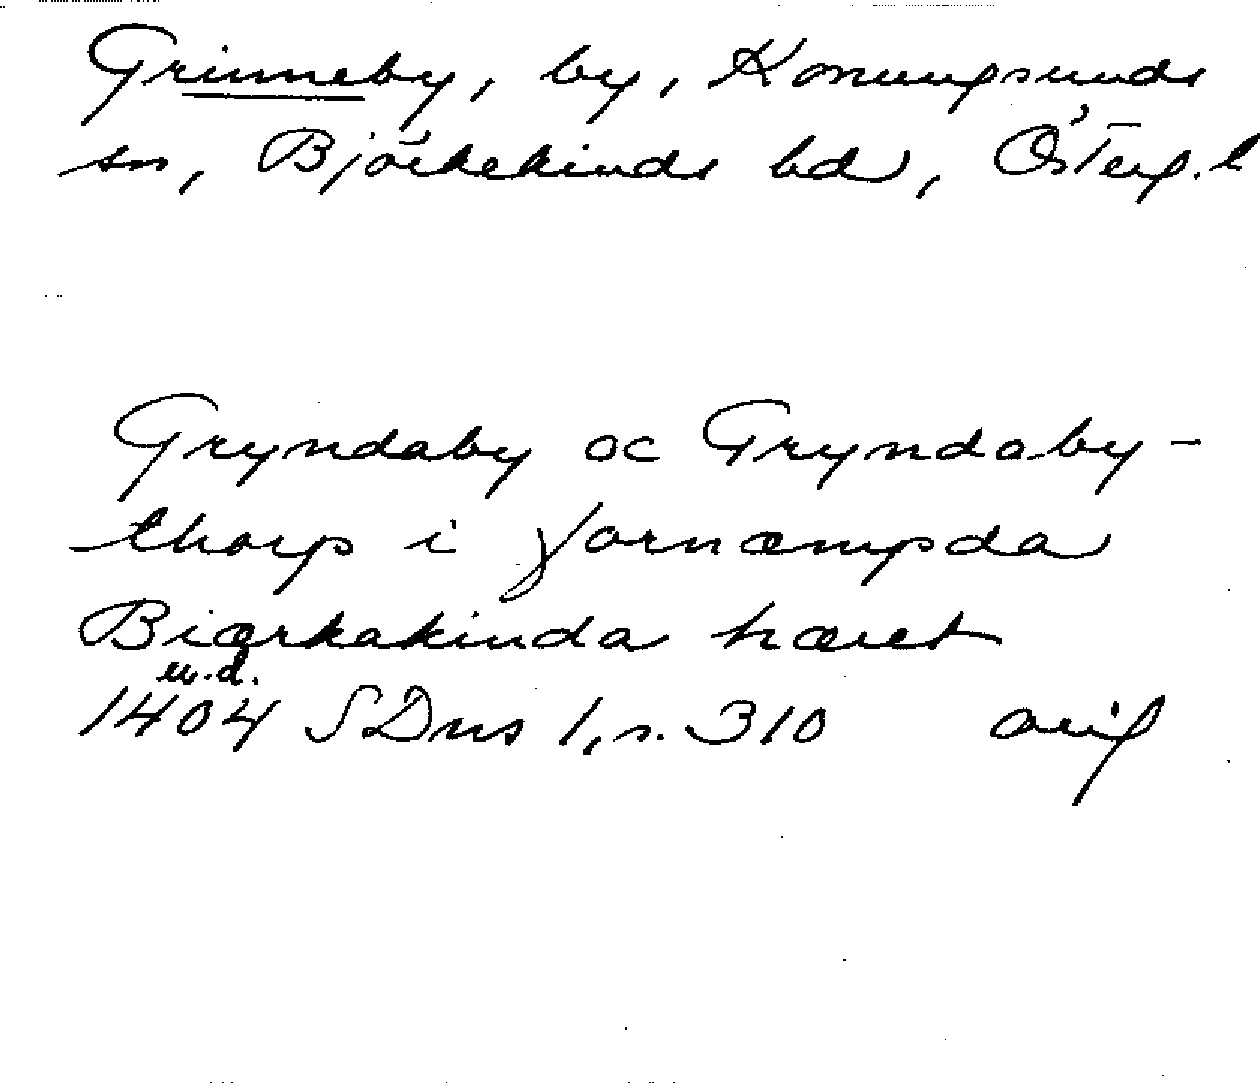 Grinneby, by, Konungsunds
sn, Björkekinds hd, Österg. l
Gryndaby oc Gryndaby-
thorp i fornæmpda
Biærkakinda hæret
u.d.
1404 SDns 1, s. 310 orig